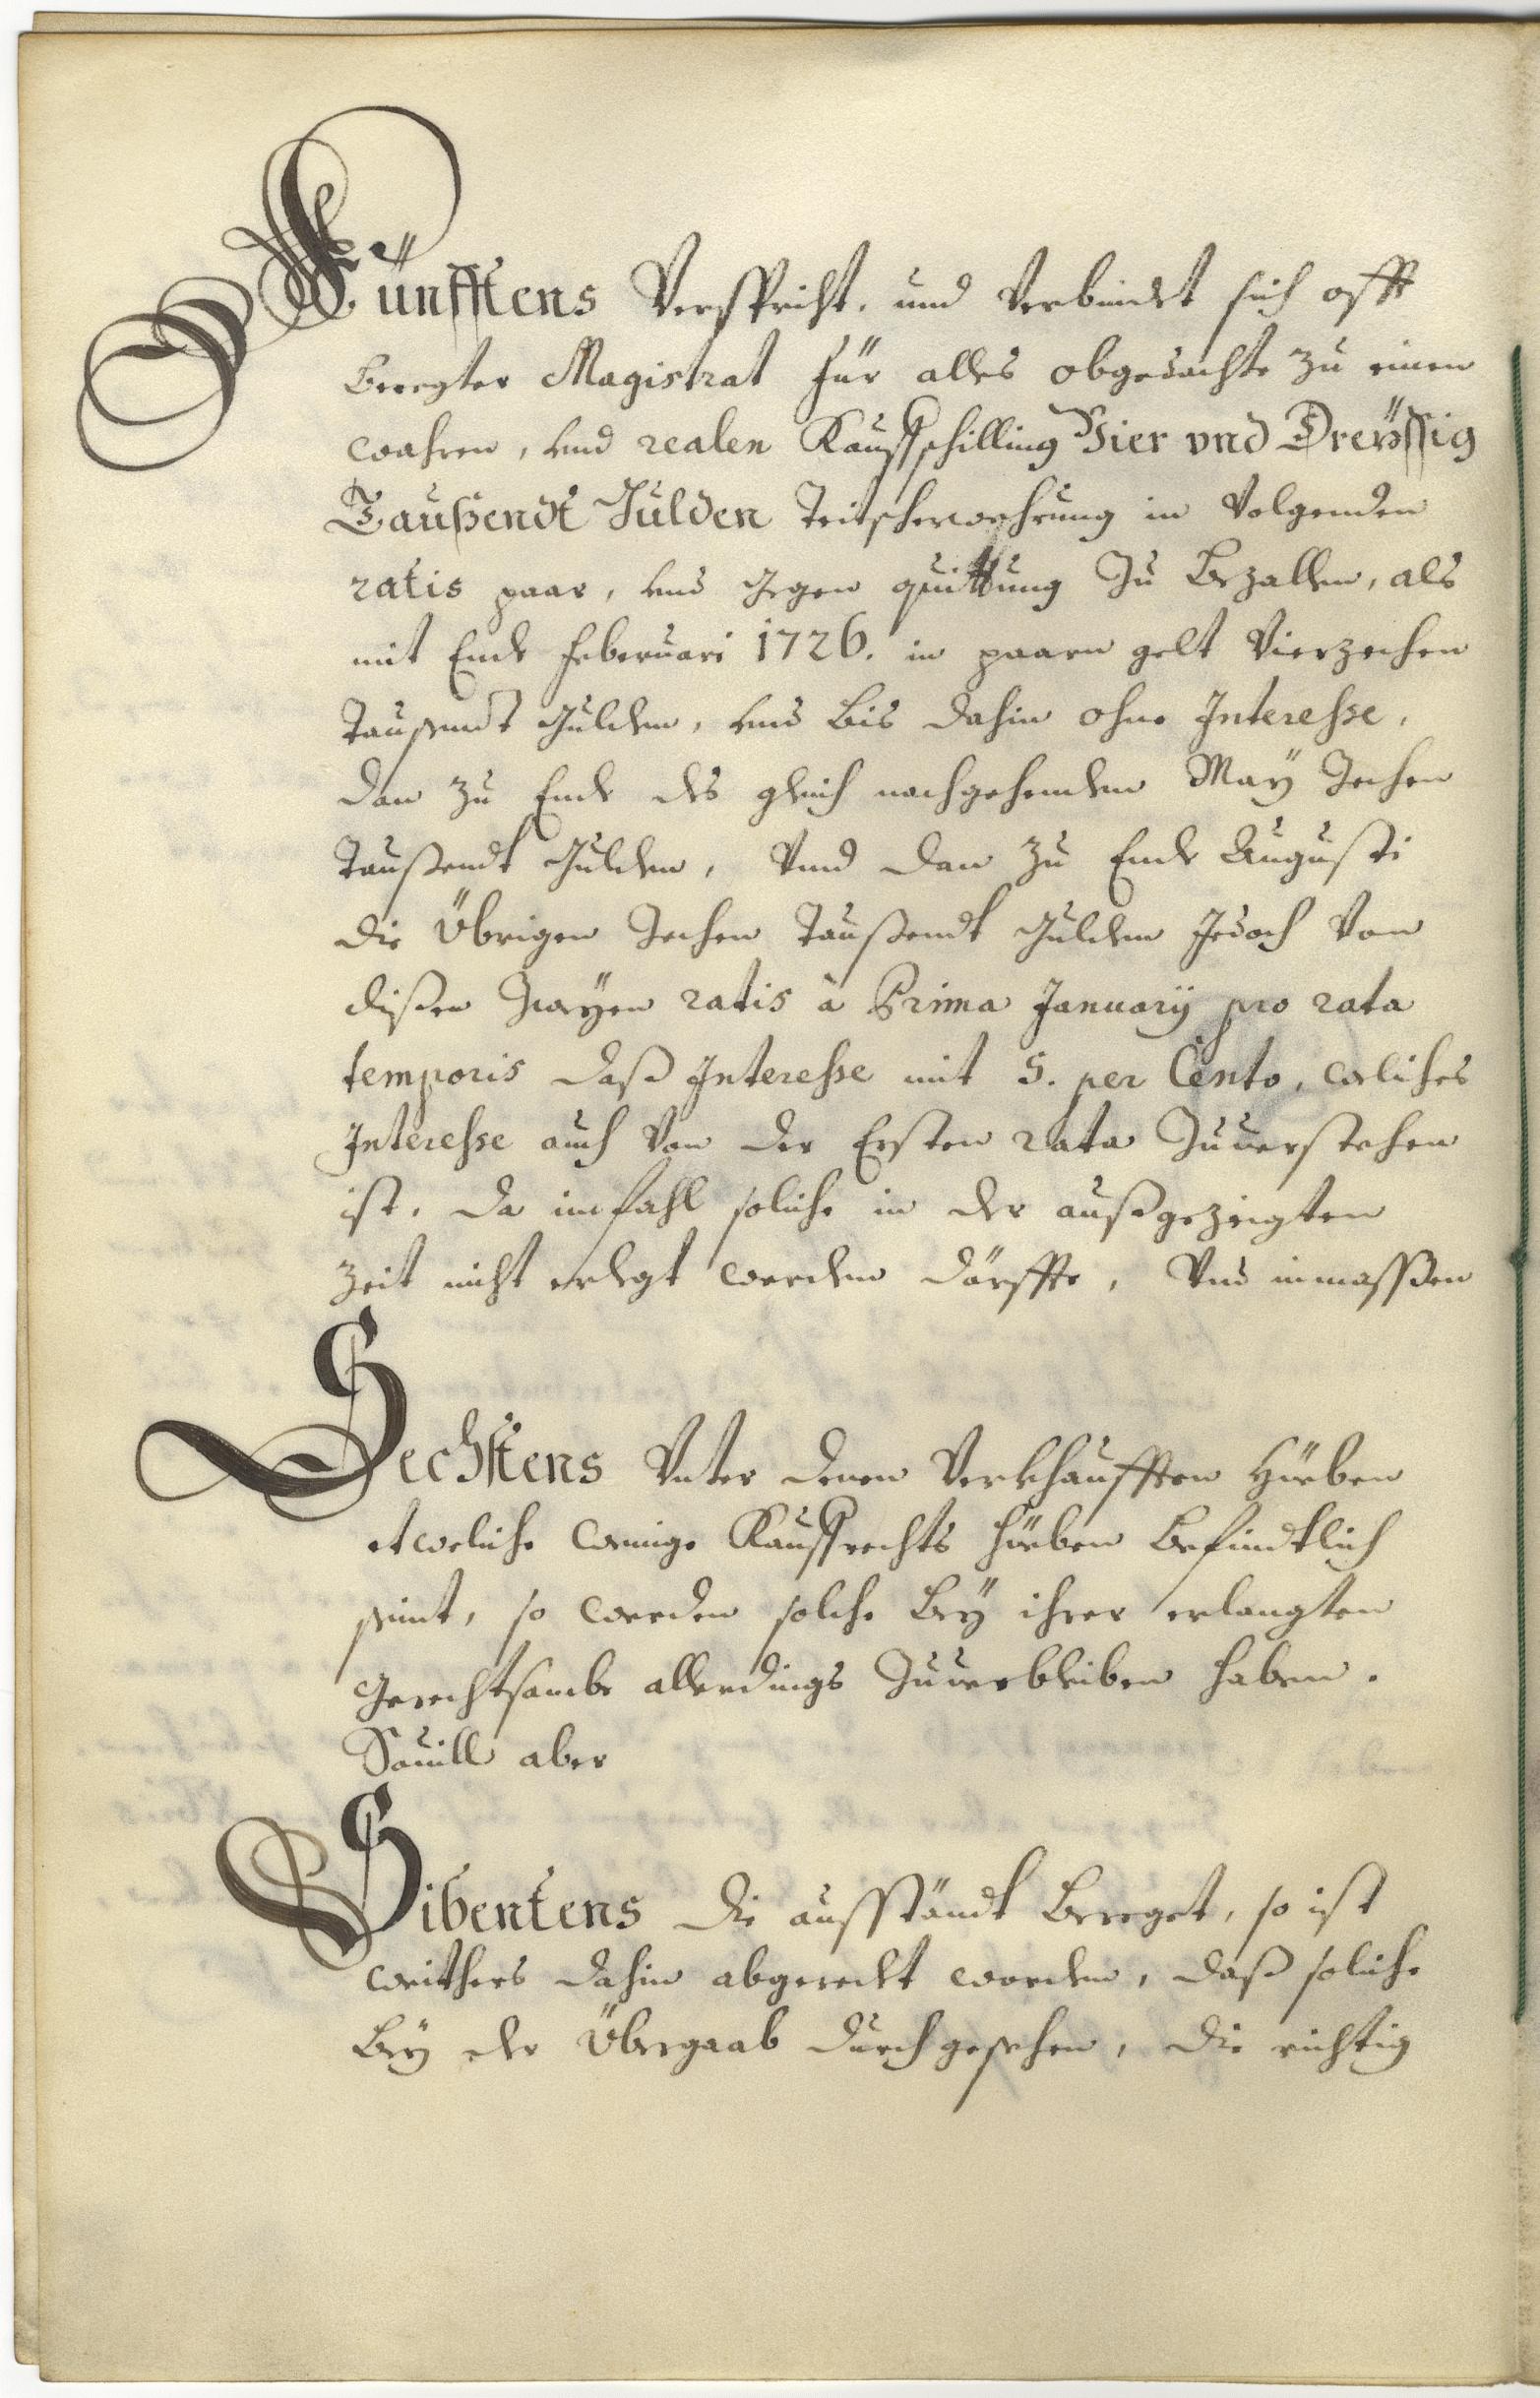 Fünfftens Verspricht, und Verbindet sich offt
beregter Magistrat für alles obgedachte zu einen
wahren, und realen Kauffschilling Vier vnd Dreÿssig
Taußendt Gulden Teitscherwehrung in Volgenden
ratis paar, und gegen quittung Zu bezallen, als
mit Ende Feberuari 1726. in paarn gelt Vierzechen
Taußendt Gulden, und bis dahin ohne Interesse,
dan zu Ende des gleich nachgehenden Maÿ Zechen
Taußendt Gulden, Vnd dan zu Ende Augusti
die Übrigen Zechen Taußendt Gulden Jedoch Von
dißen Zwaÿen ratis à Prima Januarÿ pro rata
temporis daß Interesse mit 5. per Cento, weliches
Interesse auch Von der Ersten rata Zuuerstehen
ist, da imfahl soliche in der außgezeigten
Zeit nicht erlegt werden därffte, Vnd inmassen
Sechstens Vnter denen Verkhaufften Hüeben
etweliche wenige Kauffrechts hüeben befindtlich
seint, so werden solche beÿ ihrer erlangten
Gerechtsambe allerdings Zuuerbleiben haben.
Souill aber
Sibentens die ausständt bereget, so ist
weithers dahin abgeredet worden, daß soliche
beÿ der Übergaab durchgesehen, die richtig